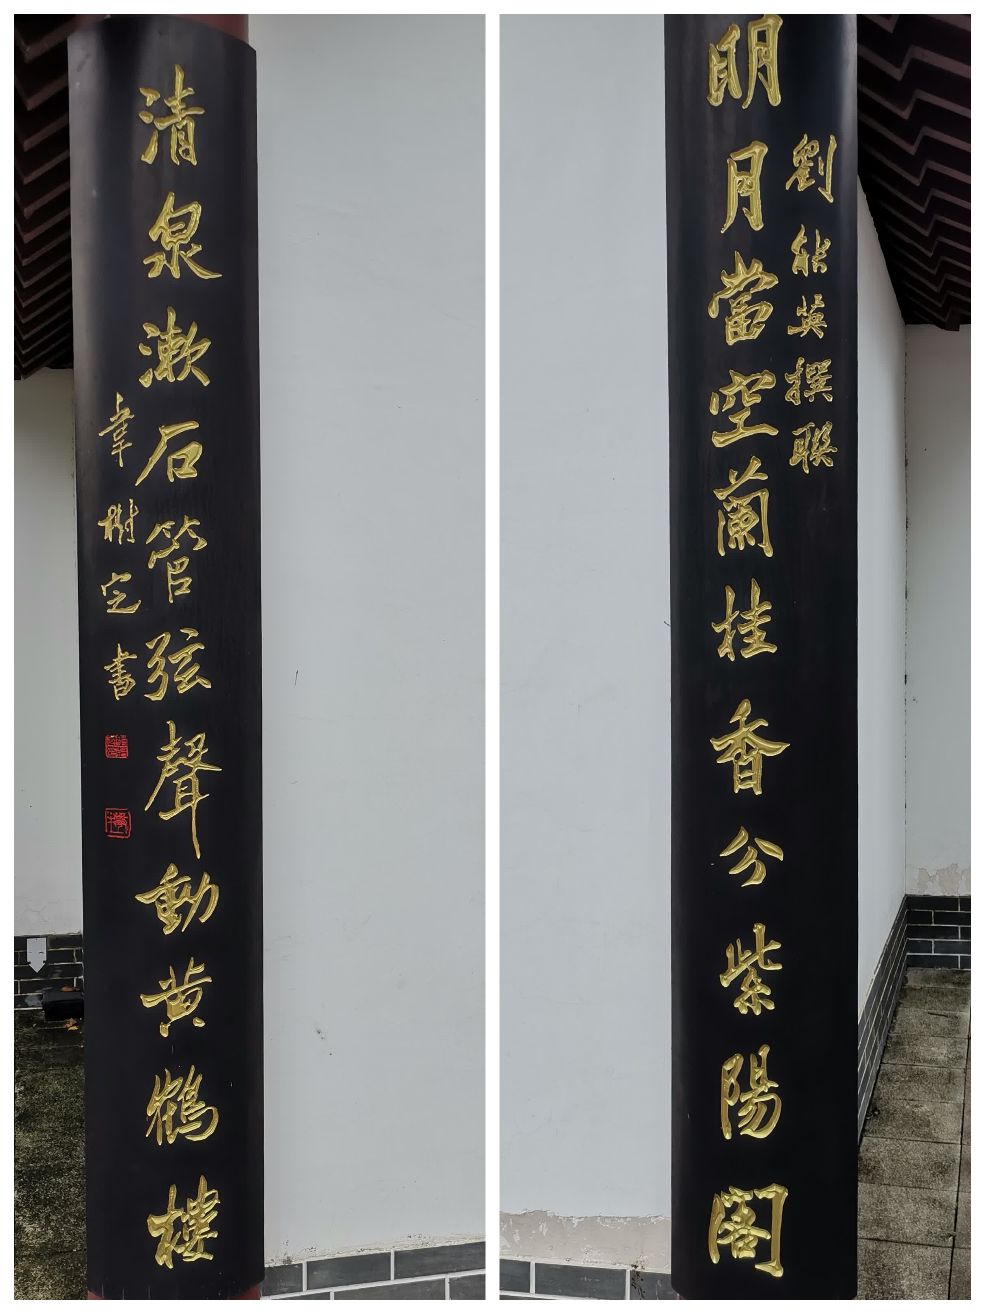 劉能英撰聯
明月當空蘭桂香分紫陽閣
清泉漱石管弦聲動黃鶴樓
韋樹定書